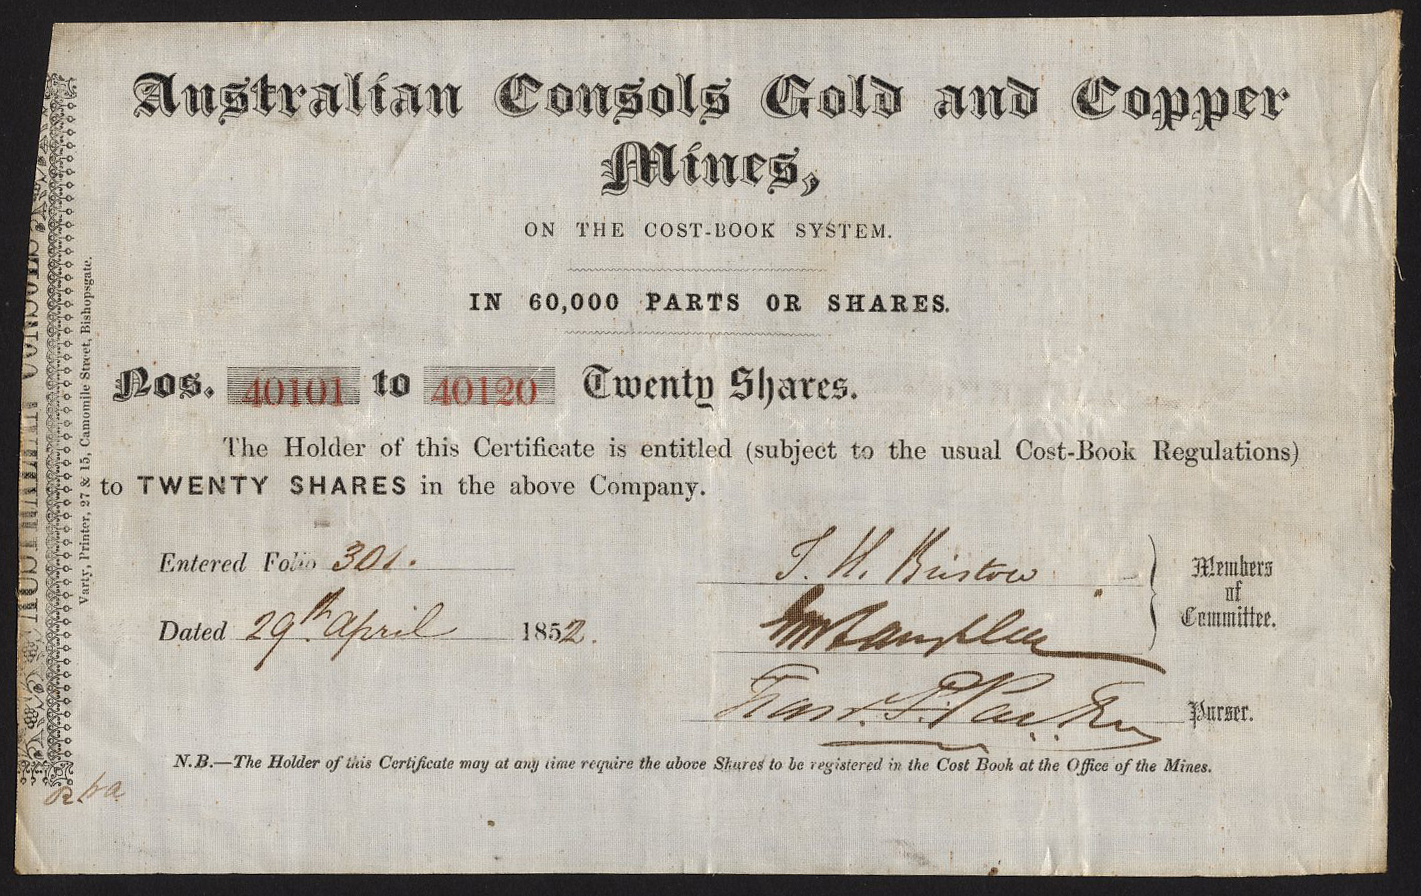 Australian Consols Gold and Copper
Mines,
ON THE COST-BOOK SYSTEM.
IN 60,000 PARTS OR SHARES.
Nos. 40101 to 40120 Twenty Shares.
The Holder of this Certificate is entitled (subject to the usual Cost-Book Regulations)
to TWENTY SHARES in the above Company.
Entered Folio 301.
Dated 29th April 1852.
T. H. Bristow
Members
of
Committee.
Purser.
N.B.—The Holder of this Certificate may at any time require the above Shares to be registered in the Cost Book at the Office of the Mines.
Varty, Printer, 27 & 15, Camomile Street, Bishopsgate.
AUSTRALIAN CONSOLS